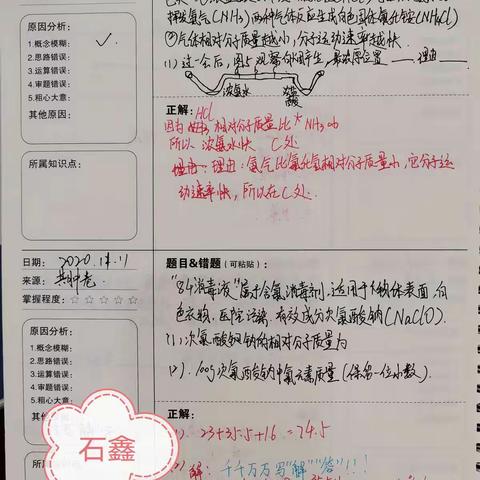 挥发氨气(CNH₃)两种气体反应生成白色固体氯化铵(NH₄Cl)
②气体相对分子质量越小,分子运动速率越快.
(1)一会后,图5观察
最浓厚位置 ___ 理由 ___
浓氨水
浓盐酸
原因分析:
1.概念模糊: ✓
2.思路错误:
3.运算错误:
4.审题错误:
5.粗心大意:
其他原因:
正解: HCl
因为 相对分子质量比 NH₃ 大
所以 浓氨水快 C处
理由:氨气比氯化氢相对分子质量小,它分子运
动速率快,所以在C处.
所属知识点:
日期: 2020.11.11
来源:
掌握程度:☆☆☆☆☆
题目&错题(可粘贴):
"84消毒液"属于含氯消毒剂,适用于物体表面,白
色衣物,医院污染,有效成分次氯酸钠(NaClO).
(1)、次氯酸钠的相对分子质量为
(2)、100g次氯酸钠中氯元素质量(保留一位小数).
原因分析:
1.概念模糊:
2.思路错误:
3.运算错误:
4.审题错误:
5.粗心大意:
其他
石鑫
正解:
(1) 23+35.5+16=74.5
(2)解: 千千万万写"解""答"!!!
所属